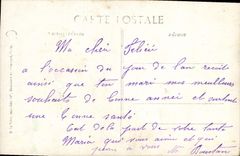 CARTE POSTALE
Ma chère Félicie
a l'occasion du jour de l'an reçoit
ainsi que ton mari mes meilleurs
souhaits de bonne année et surtout
une bonne santé
de la part de votre tante
Maria qui vous aime et qui
pense à vous